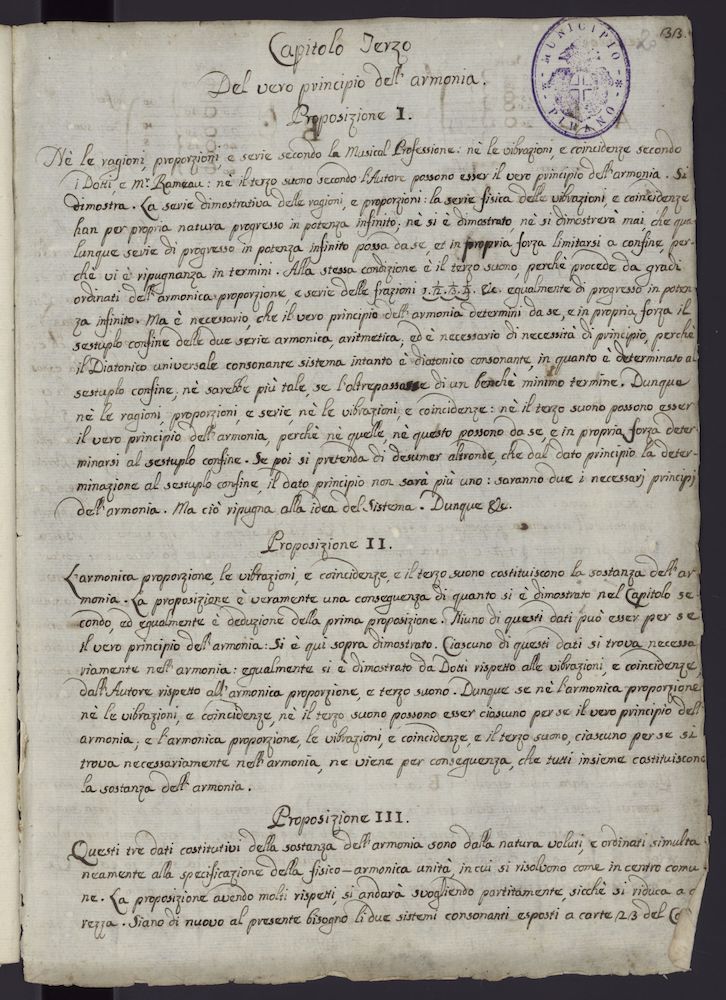 133
MUNICIPIO
PIRANO
Capitolo Terzo
Del vero principio dell'armonia.
Proposizione I.
Nè le ragioni, proporzioni, e serie secondo la Musical Professione: nè le vibrazioni, e coincidenze secondo
i Dotti, e Mr. Rameau: nè il terzo suono secondo l'Autore possono esser il vero principio dell'armonia. Si
dimostra. La serie dimostrativa delle ragioni, e proporzioni: la serie fisica delle vibrazioni, e coincidenze
han per propria natura progresso in potenza infinito; nè si è dimostrato, nè si dimostrerà mai, che qua
lunque serie di progresso in potenza infinito possa da se, et in propria forza limitarsi a confine per-
chè vi è ripugnanza in termini. Alla stessa condizione è il terzo suono, perchè procede da gradi
ordinati dell'armonica proporzione, e serie delle frazioni 1. 1/2. 1/3. 1/4. &c. egualmente di progresso in poten
za infinito. Ma è necessario, che il vero principio dell'armonia determini da se, e in propria forza il
sestuplo confine delle due serie armonica, aritmetica; ed è necessario di necessità di principio, perchè
il Diatonico universale consonante sistema intanto è diatonico consonante, in quanto è determinato al
sestuplo confine, nè sarebbe più tale, se l'oltrepassasse di un benchè minimo termine. Dunque
nè le ragioni, proporzioni, e serie, nè le vibrazioni, e coincidenze: nè il terzo suono possono esser
il vero principio dell'armonia, perchè nè quelle, nè questo possono da se, e in propria forza deter-
minarsi al sestuplo confine. Se poi si pretenda di desumer altronde, che dal dato principio la deter-
minazione al sestuplo confine, il dato principio non sarà più uno: saranno due i necessarj principj
dell'armonia. Ma ciò ripugna alla idea del Sistema. Dunque &c.
Proposizione II.
L'armonica proporzione, le vibrazioni, e coincidenze, e il terzo suono costituiscono la sostanza dell'ar
monia. La proposizione è veramente una conseguenza di quanto si è dimostrato nel Capitolo se
condo, ed egualmente è deduzione della prima proposizione. Niuno di questi dati può esser per se
il vero principio dell'armonia: Si è qui sopra dimostrato. Ciascuno di questi dati si trova necessa
riamente nell'armonia: egualmente si è dimostrato da Dotti rispetto alle vibrazioni, e coincidenze,
dall'Autore rispetto all'armonica proporzione, e terzo suono. Dunque se nè l'armonica proporzione
nè le vibrazioni, e coincidenze, nè il terzo suono possono esser ciascuno per se il vero principio dell'
armonia; e l'armonica proporzione, le vibrazioni, e coincidenze, e il terzo suono, ciascuno per se si
trova necessariamente nell'armonia, ne viene per conseguenza, che tutti insieme costituiscono
la sostanza dell'armonia.
Proposizione III.
Questi tre dati costitutivi della sostanza dell'armonia sono dalla natura voluti, e ordinati simulta
neamente alla specificazione della fisico-armonica unità, in cui si risolvono come in centro comu
ne. La proposizione avendo molti rispetti si andarà svogliendo partitamente, sicchè si riduca a c
rezza. Siano di nuovo al presente bisogno li due sistemi consonanti esposti a carte 23 del